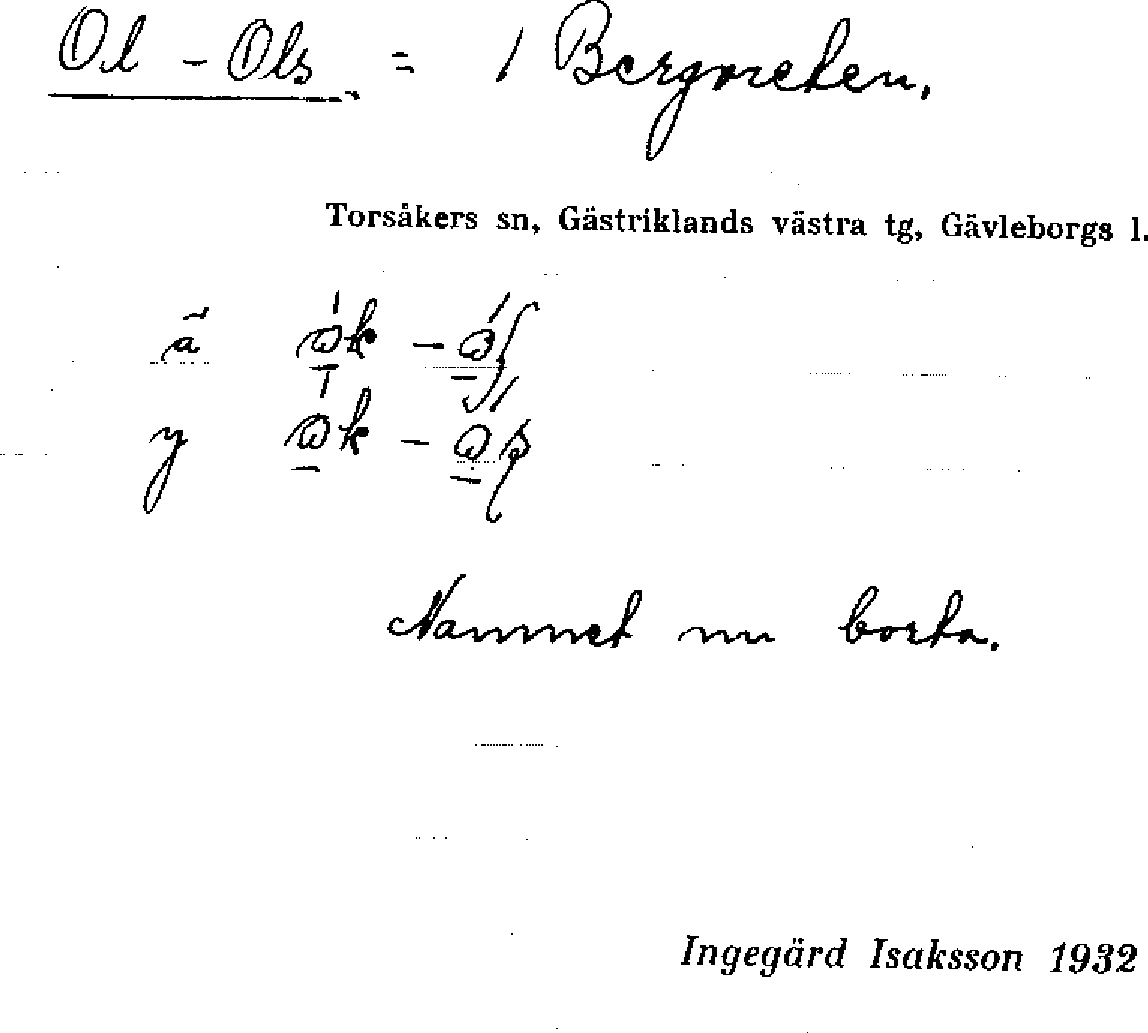 Ol - Ols = 1 Bergvreten.
Torsåkers sn, Gästriklands västra tg, Gävleborgs l.
ä
y
Namnet nu borta.
Ingegärd Isaksson 1932